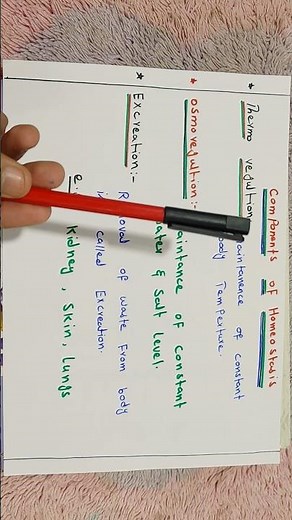 Components of Homeostasis
* Thermo regultion
aintanence of constant
body Temperture.
* osmoregultion:-
aintance of constant
ater & Salt level.
* Excreation:-
Removal of waste from body
is called Excreation.
Kidney, Skin, Lungs